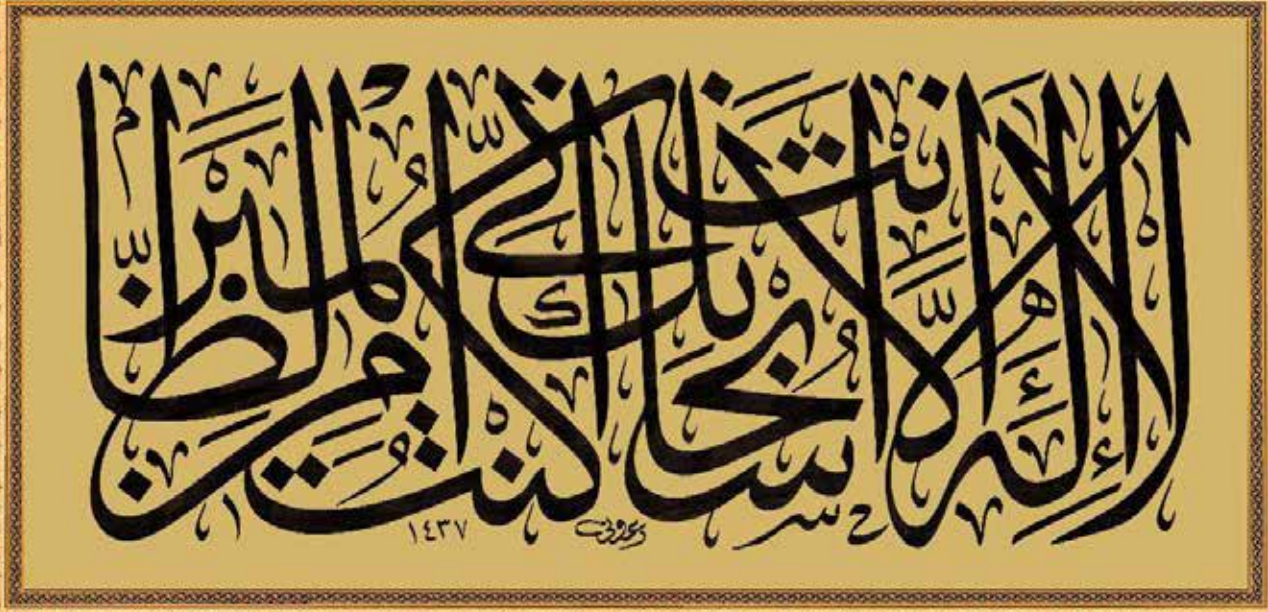 لا إِلَٰهَ إِلَّا أَنْتَ سُبْحَانَكَ إِنِّي كُنْتُ مِنَ الظَّالِمِينَ
١٤٣٧